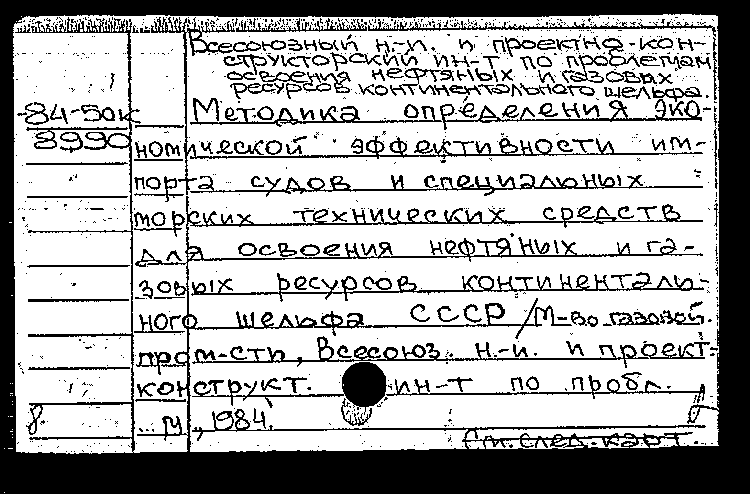 Всесоюзный н.-и. и проектно-кон-
структорский ин-т по проблемам
освоения нефтяных и газовых
ресурсов континентального шельфа.
84-50к
8990
Методика определения эко-
номической эффективности им-
порта судов и специальных
морских технических средств
для освоения нефтяных и га-
зовых ресурсов континенталь-
ного шельфа СССР / М-во газовой.
пром-сти, Всесоюз. н.-и. и проект-
конструкт. ин-т по пробл.
... М, 1984.
См. след. карт.